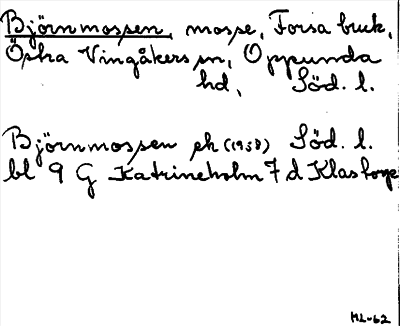 Björnmossen, mosse, Forsa bruk,
Östra Vingåkers sn, Oppunda
hd, Söd. l.
Björnmossen ek (1958) Söd. l.
bl 9 G Katrineholm 7 d Klastorp
ML-62